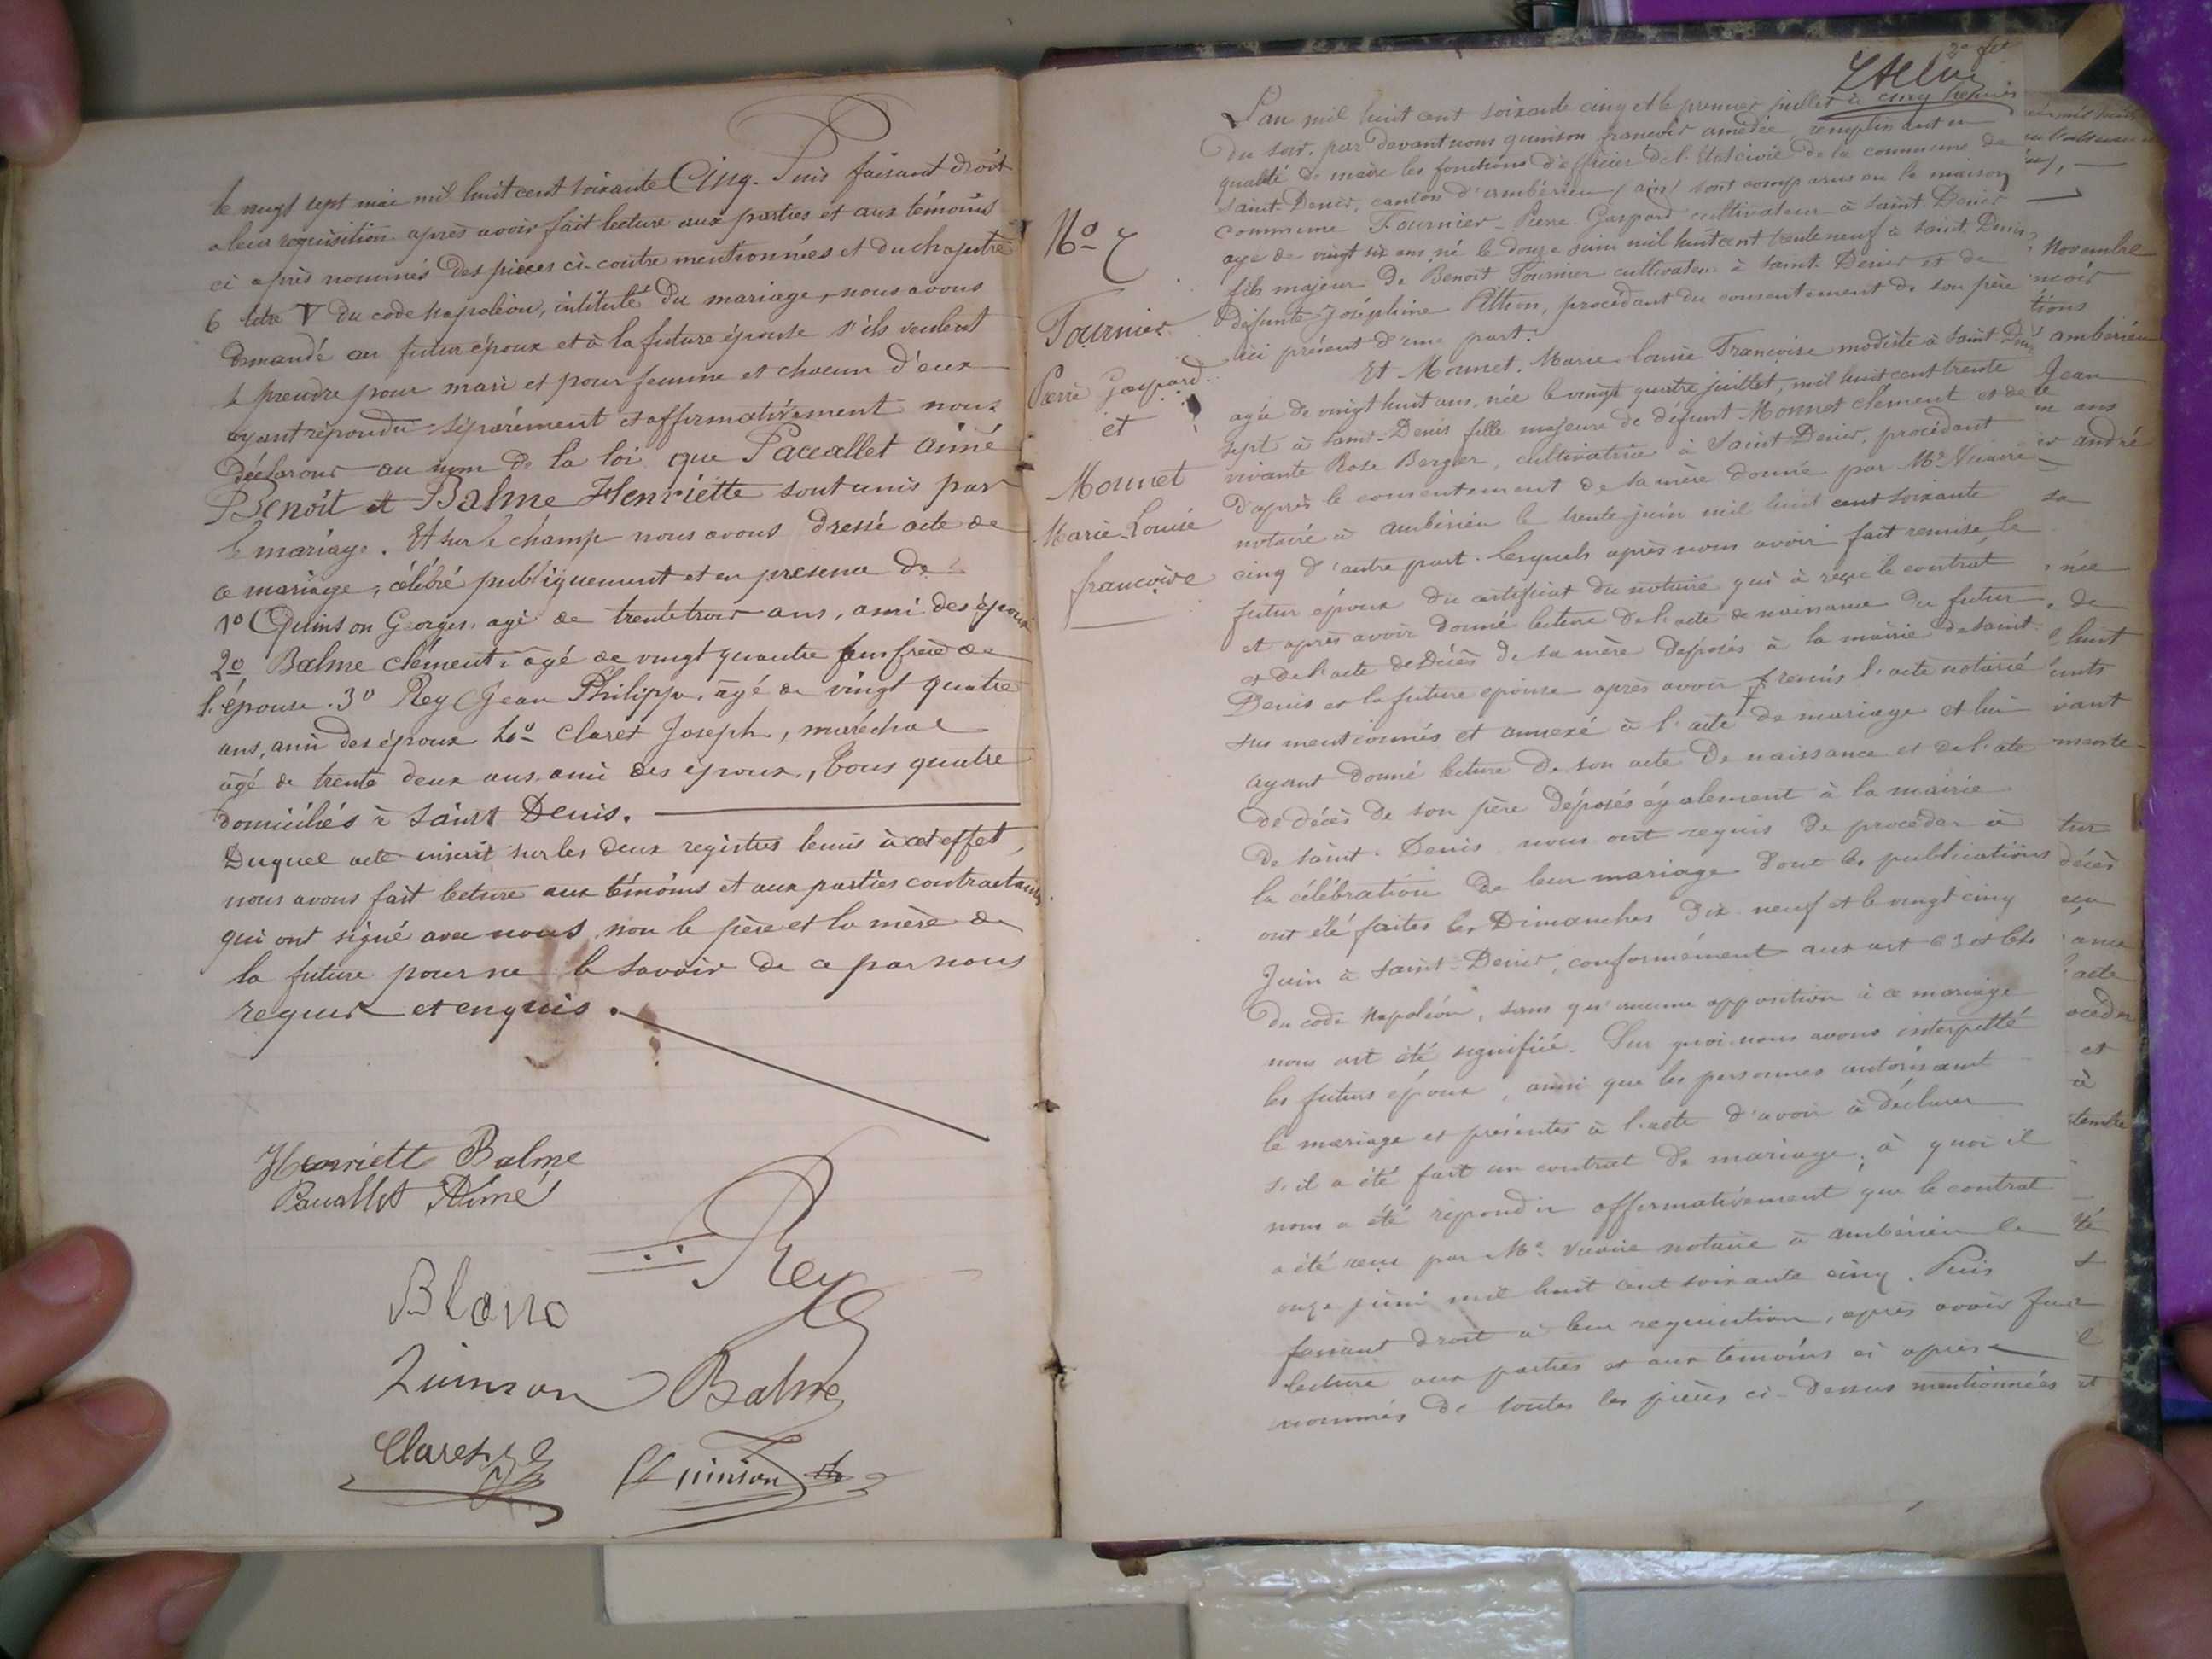 le vingt sept mai mil huit cent soixante Cinq. Puis faisant droit
a leur requisition après avoir fait lecture aux parties et aux témoins
ci après nommés des pièces ci-contre mentionnées et du chapitre
6 titre V du code napoléon, intitulé du mariage, nous avons
demandé au futur époux et à la future épouse s'ils veulent
se prendre pour mari et pour femme et chacun d'eux
ayant répondu séparément et affirmativement nous
déclarons au nom de la loi que Paccallet aimé
Benoît et Balme Henriette sont unis par
le mariage. Et sur le champ nous avons dressé acte de
ce mariage, célébré publiquement et en présence de
1o Quinson Georges, agé de trente trois ans, ami des époux
2o Balme clément, âgé de vingt quatre ans frère de
l'épouse. 3o Rey Jean Philippe, âgé de vingt quatre
ans, ami des époux 4o Claret Joseph, maréchal
âgé de trente deux ans ami des époux, tous quatre
domiciliés à Saint Denis.
Duquel acte inscrit sur les deux registres tenus à cet effet,
nous avons fait lecture aux témoins et aux parties contractantes
qui ont signé avec nous, non le père et la mère de
la future pour ne le savoir de ce par nous
requis et enquis.
Henriette Balme
Paccallet Aimé
Rey
Blanc
Quinson Balme
Claret
Quinson
2e fet
No 7
Fournier
Pierre Gaspard
et
Monnet
Marie-Louise
françoise
L'an mil huit cent soixante cinq et le premier juillet à cinq heures
du soir, par devant nous quinson françois amédée, remplissant en
qualité de maire les fonctions d'officier de l'état civil de la commune de
Saint-Denis, canton d'ambérieu (ain) sont comparus en la maison
commune Fournier Pierre Gaspard cultivateur à Saint Denis
agé de vingt six ans, né le douze juin mil huit cent trente neuf à Saint Denis,
fils majeur de Benoît Fournier cultivateur à Saint Denis et de
défunte Joséphine, procédant du consentement de son père
ici présent d'une part.
Et Monnet, Marie louise Françoise modiste à Saint-Denis
agée de vingt huit ans, née le vingt quatre juillet, mil huit cent trente
sept à Saint-Denis fille majeure de défunt Monnet clément et de
vivante Rose Berger, cultivatrice à Saint Denis, procédant
d'après le consentement de sa mère donné par Me Vuaire
notaire à ambérieu le trente juin mil huit cent soixante
cinq d'autre part. Lesquels après nous avoir fait remise, le
futur époux du certificat du notaire qui à reçu le contrat
et après avoir donné lecture de l'acte de naissance du futur
et de l'acte de décès de sa mère déposés à la mairie de Saint
Denis et la future épouse après avoir remis l'acte notarié
sus mentionnés et annexé à l'acte de mariage et lui
ayant donné lecture de son acte de naissance et de l'acte
de décès de son père déposés également à la mairie
de Saint Denis nous ont requis de procéder à
la célébration de leur mariage dont les publications
ont été faites les Dimanches dix neuf et le vingt cinq
Juin à Saint-Denis, conformément aux art 63 et 64
du code Napoléon, sans qu'aucune opposition à ce mariage
nous ait été signifiée. Sur quoi nous avons interpellé
les futurs époux, ainsi que les personnes autorisant
le mariage et présentes à l'acte d'avoir à déclarer
s'il a été fait un contrat de mariage, à quoi il
nous a été répondu affirmativement que le contrat
a été reçu par Me Vuaire notaire à ambérieu le
onze juin mil huit cent soixante cinq. Puis
faisant droit à leur requisition, après avoir fait
lecture aux parties et aux témoins ci après
nommés de toutes les pièces ci-dessus mentionnées et
novembre
tions
ambérieu
Jean
ans
andré
sa
née
de
huit
vant
décès
acte
et
à